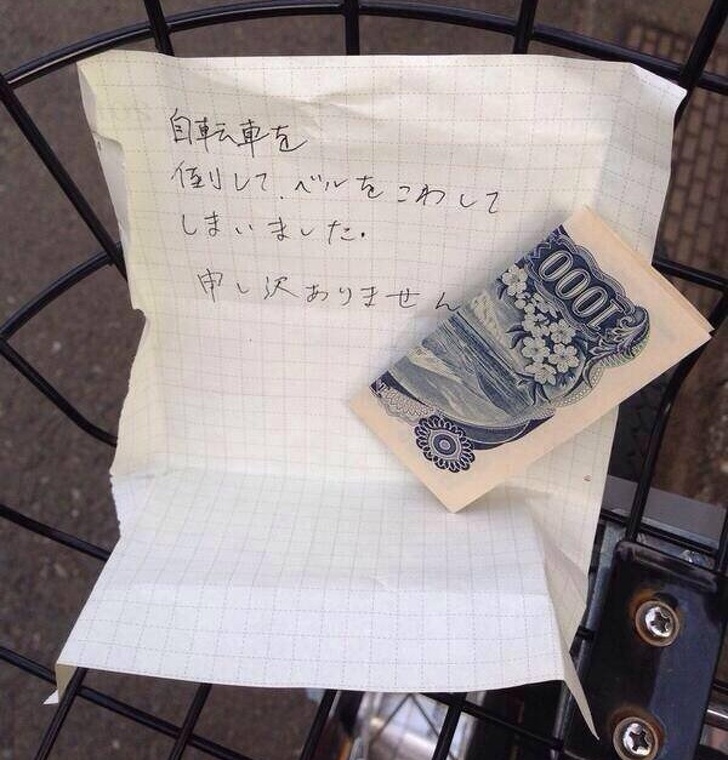 自転車を
倒して、ベルをこわして
しまいました.
申し訳ありません
1000